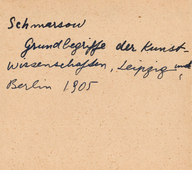 Schmarsow
Grundbegriffe der Kunst-
wissenschaften, Leipzig und
Berlin 1905